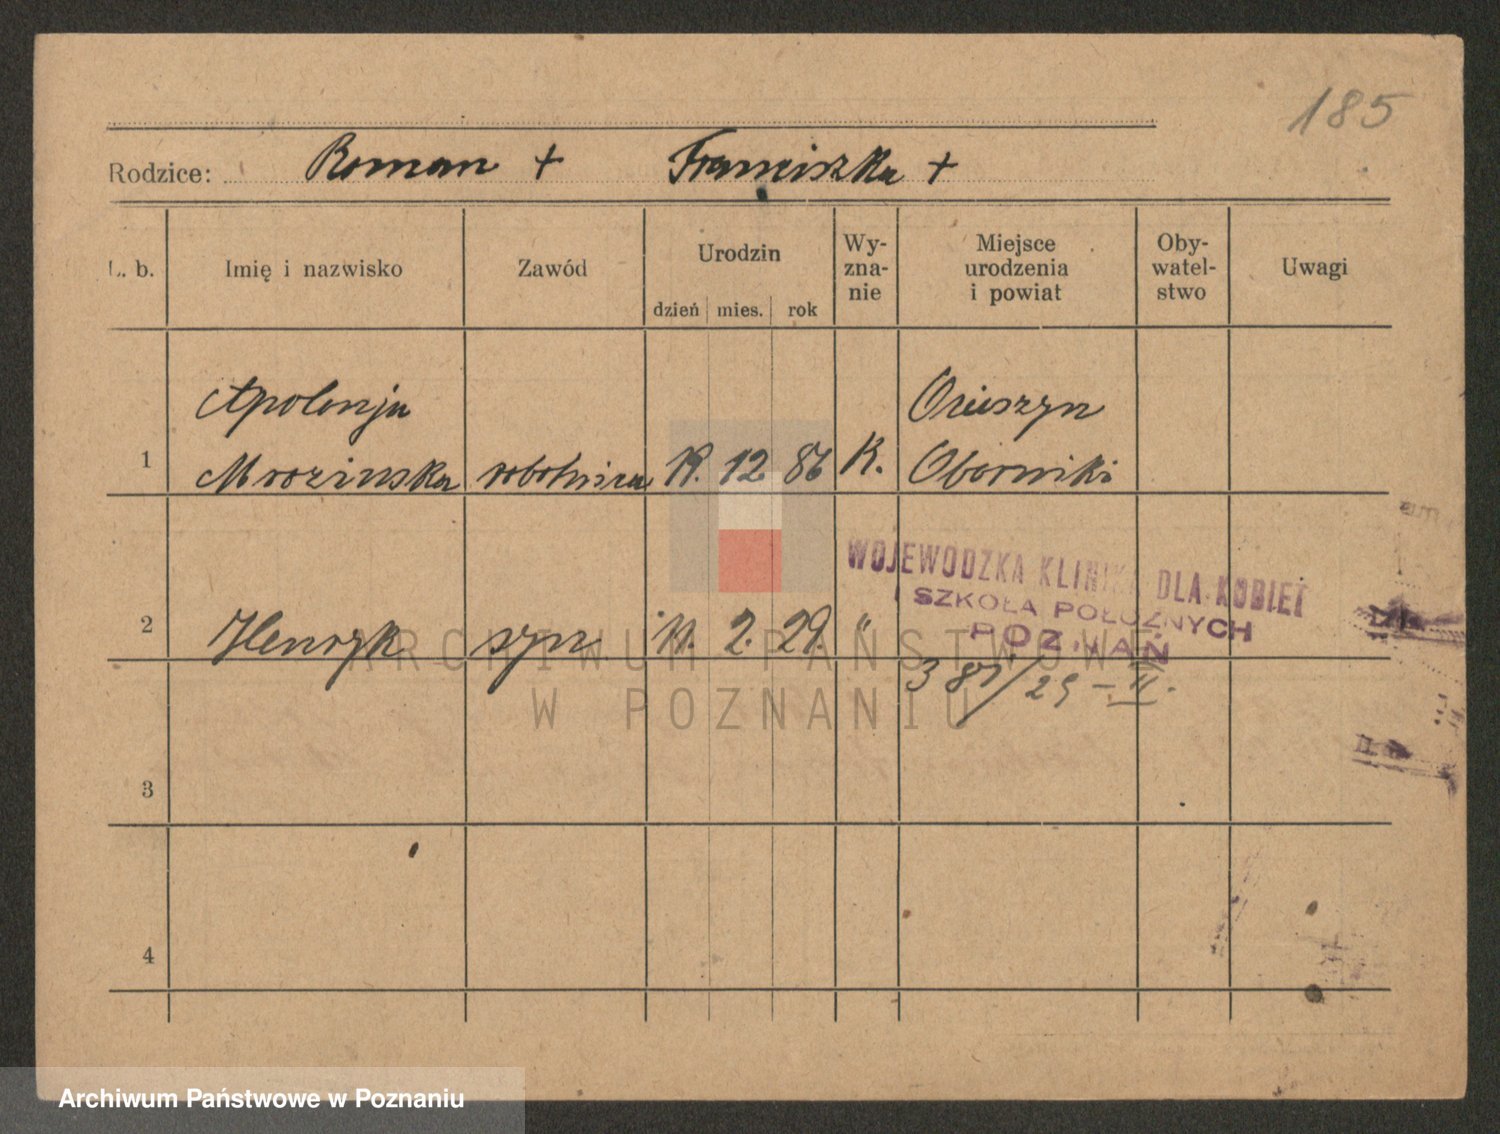 185
Rodzice: Roman + Franciszka +
L. b. Imię i nazwisko Zawód Urodzin dzień mies. rok Wy-zna-nie Miejsce urodzenia i powiat Oby-watel-stwo Uwagi
Apolonja Ocieszyn
1 Mrozinska robotnica 19. 12. 86 K. Oborniki
WOJEWODZKA KLINIKA DLA KOBIET
I SZKOŁA POŁOŻNYCH
POZNAŃ
2 Henryk syn 11. 2. 29. "
/29 - II.
3
4
ARCHIWUM PAŃSTWOWE
W POZNANIU
Archiwum Państwowe w Poznaniu